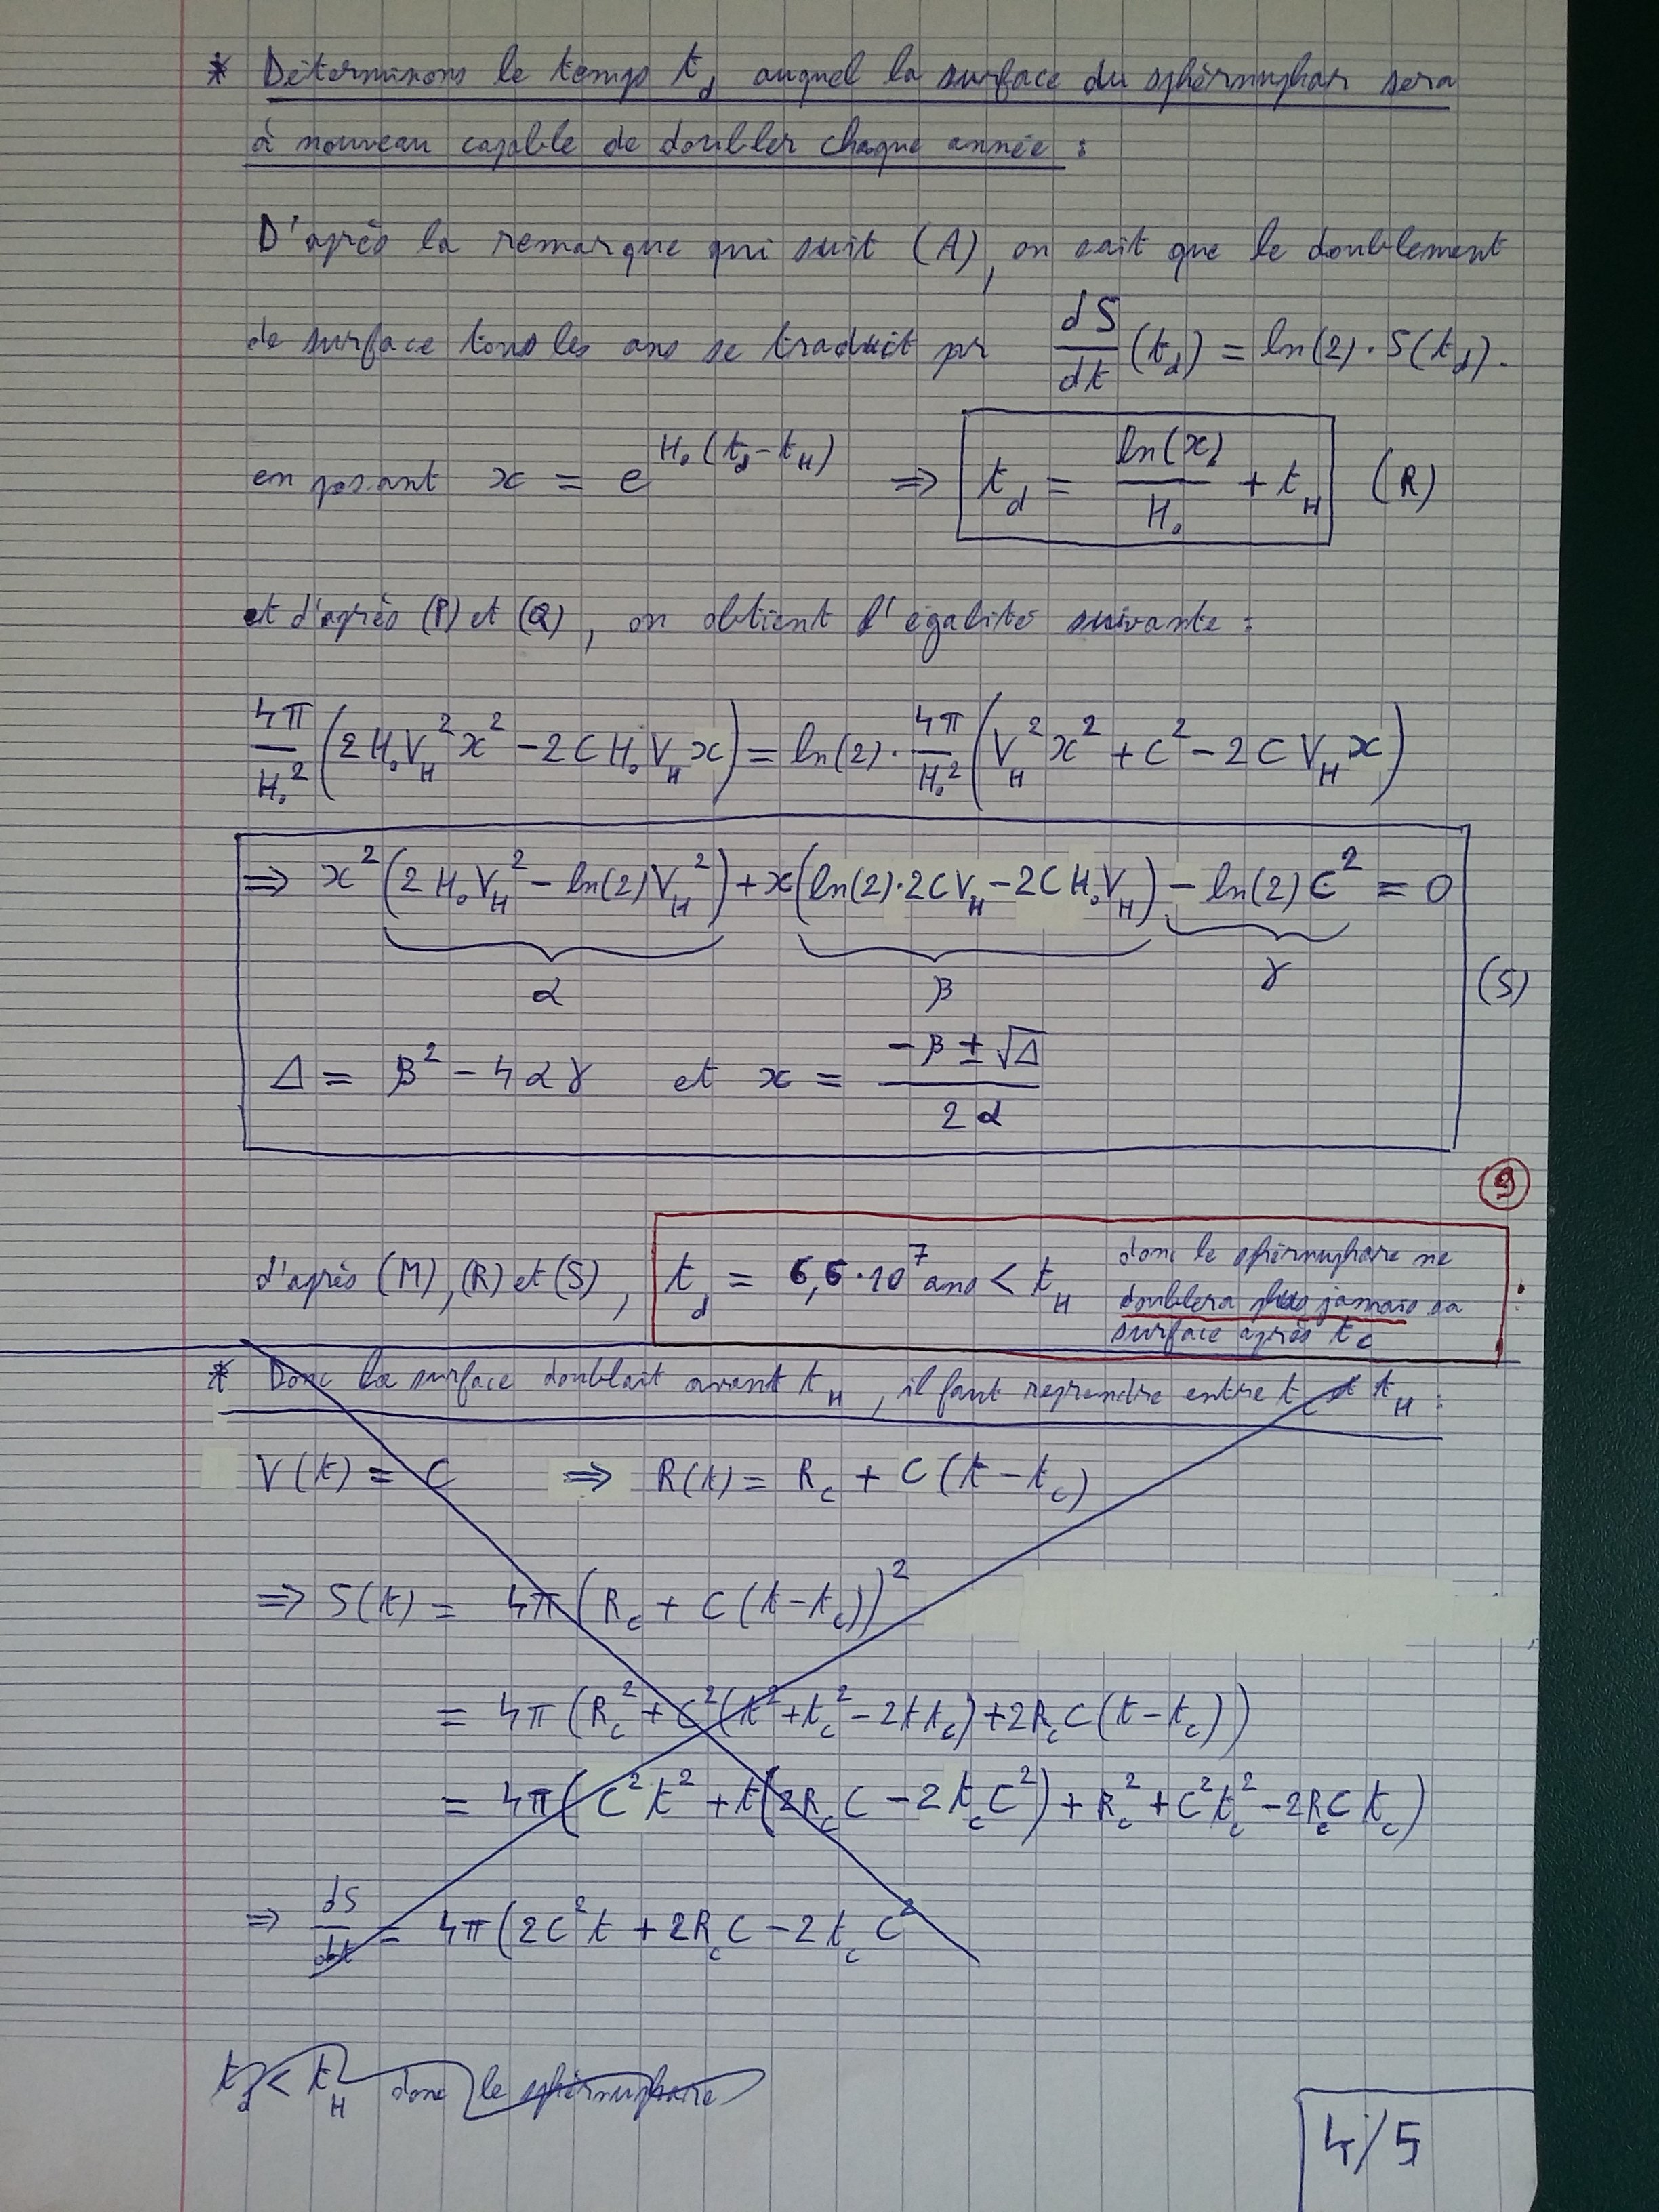 * Déterminons le temps t_d auquel la surface du sphérnuphar sera
à nouveau capable de doubler chaque année :
D'après la remarque qui suit (A), on sait que le doublement
de surface tous les ans se traduit pr dS/dt (t_d) = ln(2) · S(t_d).
en posant x = e^{H₀(t_d - t_H)} ⇒ t_d = ln(x)/H₀ + t_H (R)
et d'après (P) et (Q), on obtient l'égalité suivante :
4π/H₀² (2H₀V_H²x² - 2CH₀V_Hx) = ln(2) · 4π/H₀² (V_H²x² + C² - 2CV_Hx)
⇒ x²(2H₀V_H² - ln(2)V_H²) + x(ln(2)·2CV_H - 2CH₀V_H) - ln(2)C² = 0
α β γ (S)
Δ = β² - 4αγ et x = (-β ± √Δ)/2α
9
d'après (M), (R) et (S), t_d = 6,6·10⁷ ans < t_H donc le sphérnuphare ne
doublera plus jamais sa
surface après t_c
* Donc la surface doublait avant t_H, il faut reprendre entre t_c et t_H :
V(t) = C ⇒ R(t) = R_c + C(t - t_c)
⇒ S(t) = 4π(R_c + C(t - t_c))²
= 4π(R_c² + C²(t² + t_c² - 2tt_c) + 2R_cC(t - t_c))
= 4π(C²t² + t(2R_cC - 2t_cC²) + R_c² + C²t_c² - 2R_cCt_c)
⇒ dS/dt = 4π(2C²t + 2R_cC - 2t_cC²
t_d < t_H donc le sphérnuphare
4/5